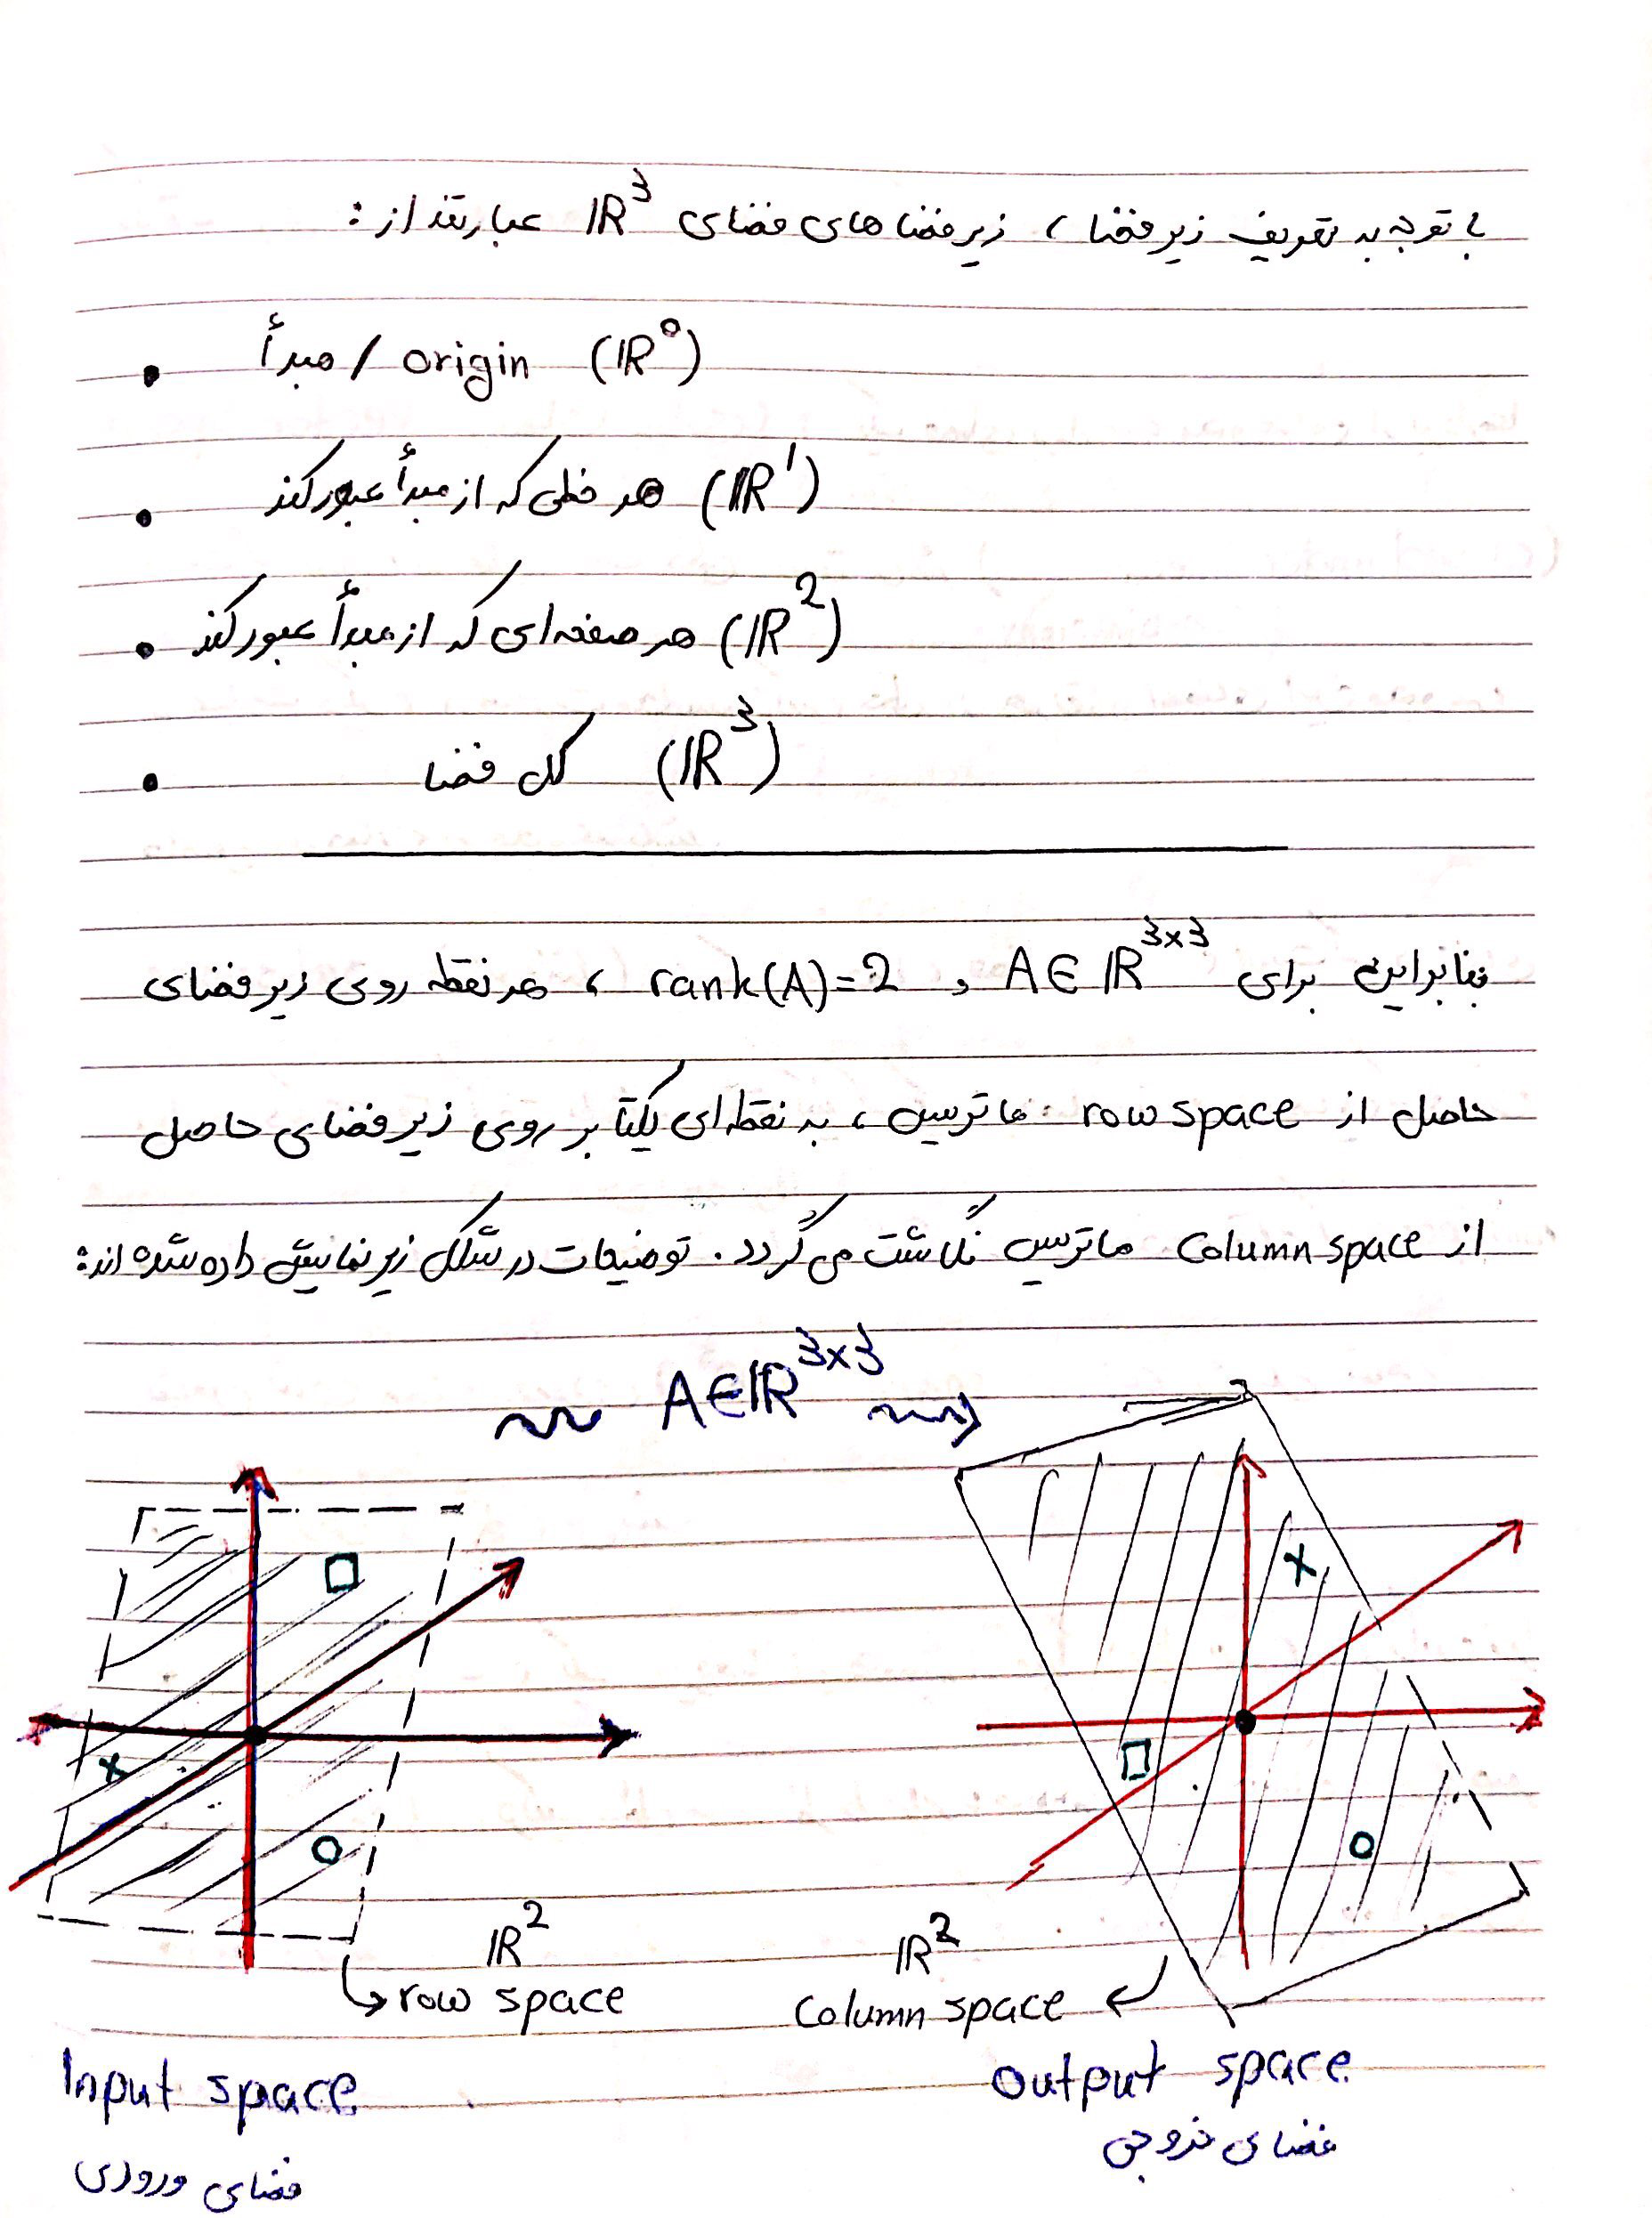 با توجه به تعریف زیرفضا، زیرفضاهای فضای IR³ عبارتند از:
• مبدأ / origin (IR⁰)
• هر خطی که از مبدأ عبور کند (IR¹)
• هر صفحه‌ای که از مبدأ عبور کند (IR²)
• کل فضا (IR³)
بنابراین برای A∈IR³ˣ³ و rank(A)=2 ، هر نقطه روی زیرفضای
حاصل از row space ماتریس، به نقطه‌ای یکتا بر روی زیرفضای حاصل
از Column space ماتریس نگاشت می‌گردد. توضیحات در شکل زیر نمایش داده شده‌اند:
A∈IR³ˣ³
IR²
row space
IR²
Column space
Input space
فضای ورودی
Output space
فضای خروجی